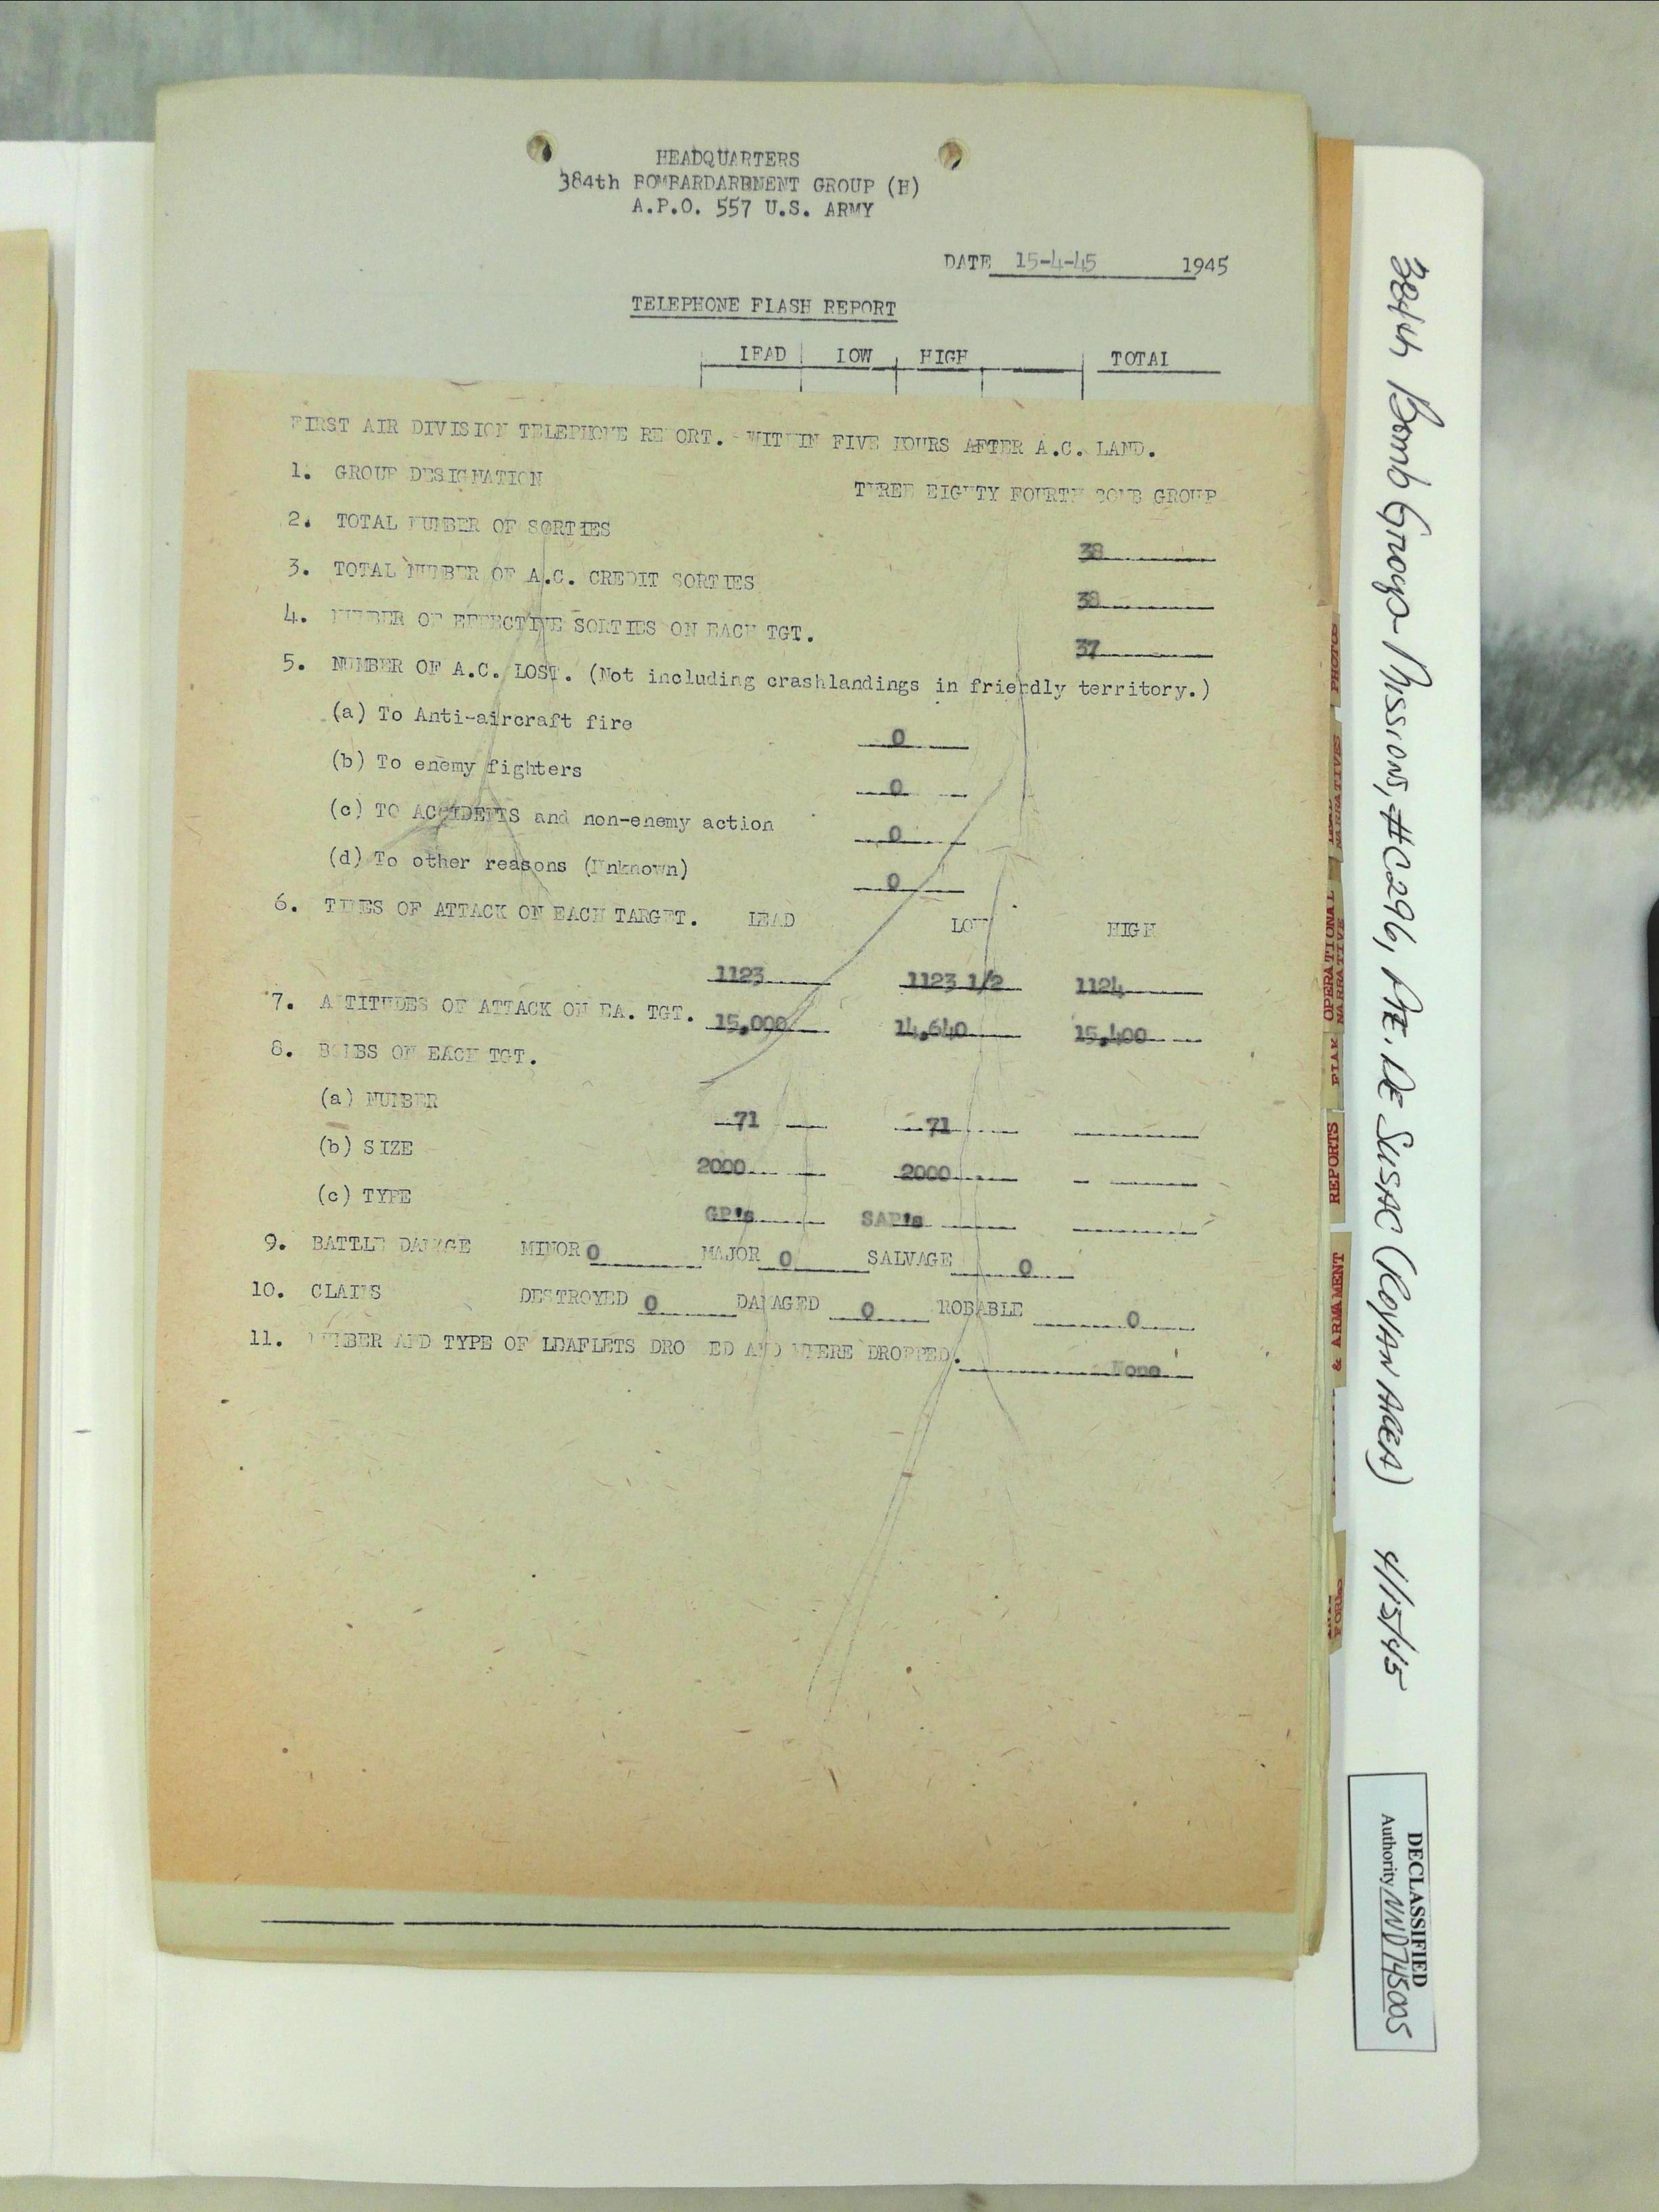 HEADQUARTERS
384th BOMBARDARBMENT GROUP (H)
A.P.O. 557 U.S. ARMY
DATE 15-4-45 1945
TELEPHONE FLASH REPORT
LEAD LOW HIGH TOTAL
FIRST AIR DIVISION TELEPHONE REPORT. - WITHIN FIVE HOURS AFTER A.C. LAND.
1. GROUP DESIGNATION THREE EIGHTY FOURTH BOMB GROUP
2. TOTAL NUMBER OF SORTIES 38
3. TOTAL NUMBER OF A.C. CREDIT SORTIES 38
4. NUMBER OF EFFECTIVE SORTIES ON EACH TGT. 37
5. NUMBER OF A.C. LOST. (Not including crashlandings in friendly territory.)
(a) To Anti-aircraft fire 0
(b) To enemy fighters 0
(c) TO ACCIDENTS and non-enemy action 0
(d) To other reasons (Unknown) 0
6. TIMES OF ATTACK ON EACH TARGET. LEAD LOW HIGH
1123 1123 1/2 1124
7. ALTITUDES OF ATTACK ON EA. TGT. 15,000 14,640 15,400
8. BOMBS ON EACH TGT.
(a) NUMBER 71 71
(b) SIZE 2000 2000
(c) TYPE GP's SAP's
9. BATTLE DAMAGE MINOR 0 MAJOR 0 SALVAGE 0
10. CLAIMS DESTROYED 0 DAMAGED 0 PROBABLE 0
11. NUMBER AND TYPE OF LEAFLETS DROPPED AND WHERE DROPPED. None
PHOTOS
NARRATIVES
OPERATIONAL
NARRATIVE
FLAK
REPORTS
& ARMAMENT
FORMS
384th Bomb Group Missions, #C296, Pte. De Susac (Royan Area) 4/15/45
DECLASSIFIED
Authority NND745005